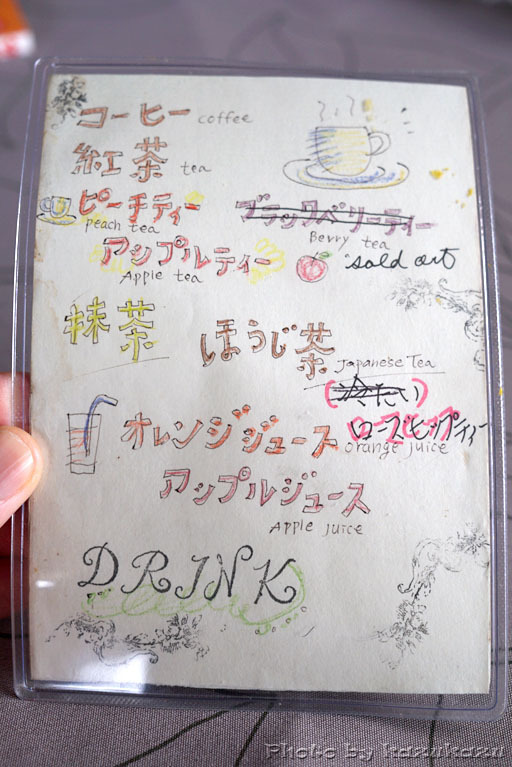 コーヒー coffee
紅茶 tea
ピーチティー ブラックベリーティー
peach tea Berry tea
アップルティー sold out
Apple tea
抹茶 ほうじ茶
Japanese Tea
(冷たい)
オレンジジュース ローズヒップティー
orange juice
アップルジュース
Apple juice
DRINK
Photo by kazukazu